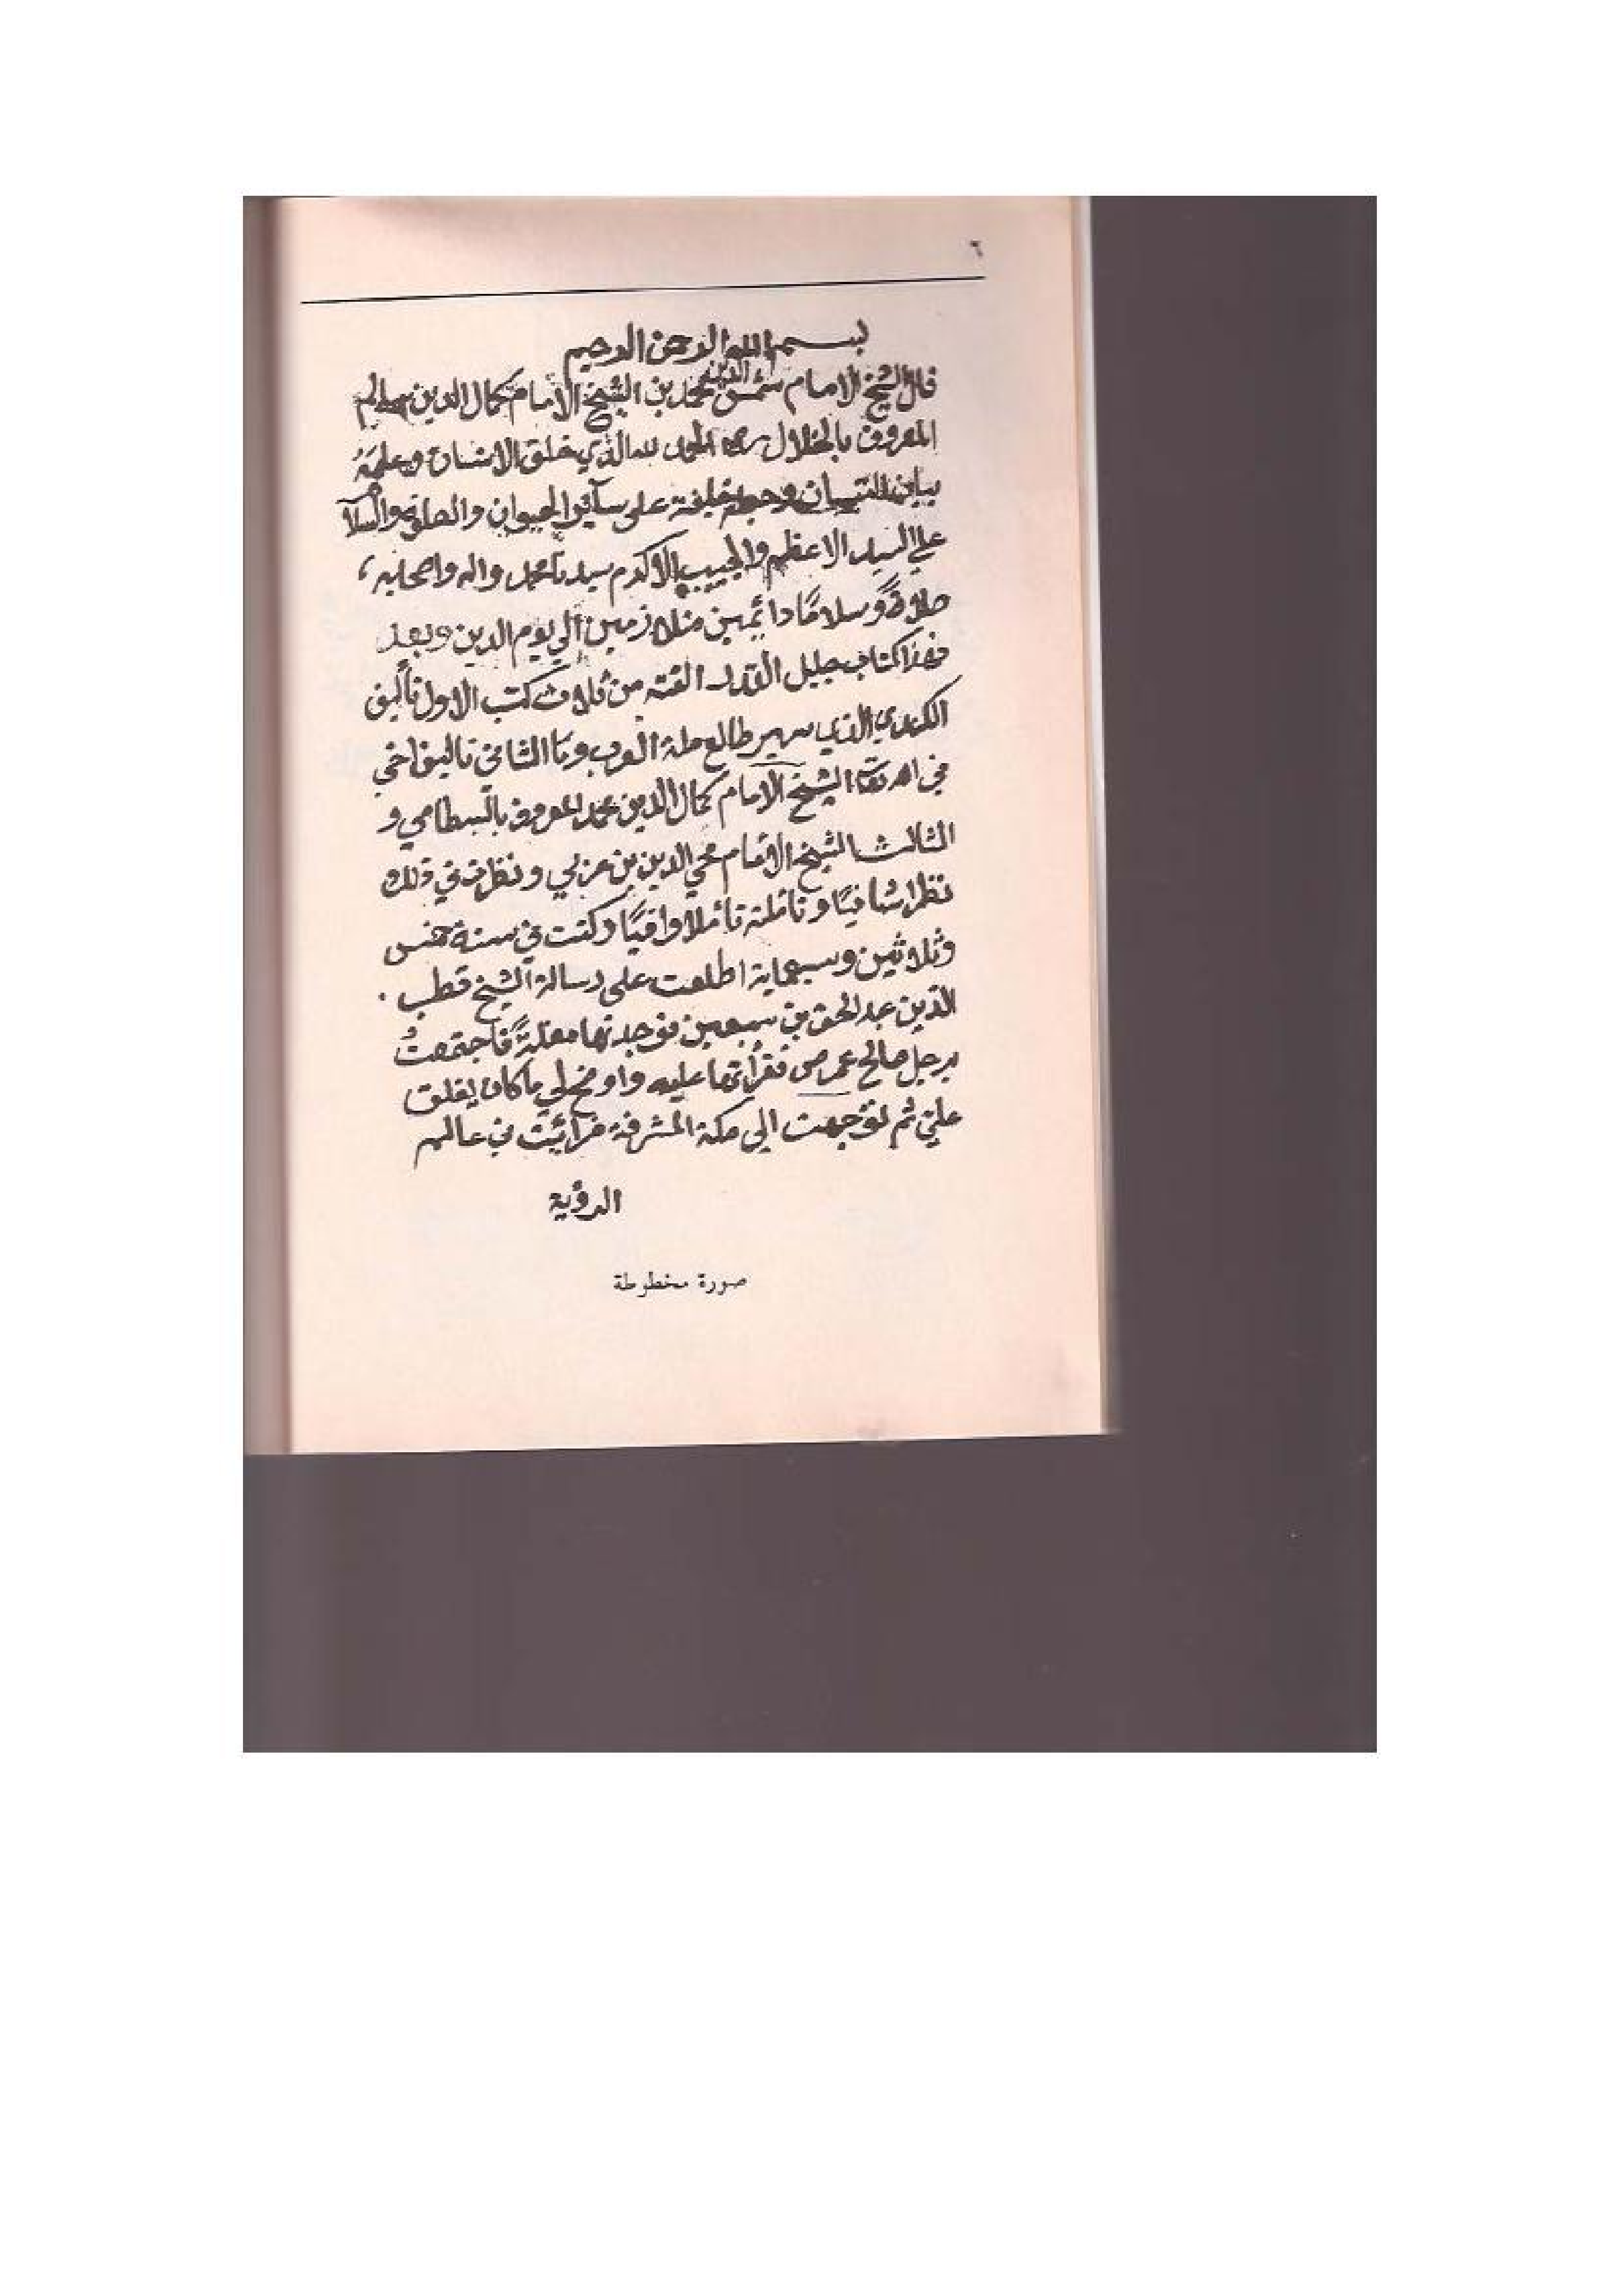 ٦
بسم الله الرحمن الرحيم
قال الشيخ الامام شمس الدين محمد بن الشيخ الامام كمال الدين سالم
المعروف بالخلال الحمد لله الذي خلق الانسان وعلمه
بيان التبيان وجعله خليفة على سآئر الحيوان والصلوة والسلا
علي السيد الاعظم والحبيب الاكرم سيدنا محمد واله واصحابه ،
صلاةً وسلامًا دائمين متلازمين الي يوم الدين وبعد
فهذا كتاب جليل القدر الفته من ثلاث كتب الاول تأليف
الكندي الذي طالع ملة العرب واما الثاني تاليف اخي
في الله تعا الشيخ الامام كمال الدين محمد المعروف بالبسطامي و
الثالث الشيخ الامام محي الدين بن عربي ونظرت في ذلك
نظرا شافيًا وتأملته تأملا وافيًا وكنت في سنة خمس
وثلاثين وسبعماية اطلعت على رسالة الشيخ قطب .
الدين عبد الحق بن سبعين فوجدتها مقلةً فاجتمعتُ
برجل صالح فقرأتها عليه واوضح لي ما كان يغلق
علي ثم توجهت الي مكة المشرفة فرأيت في عالم
الرؤية
صورة مخطوطة